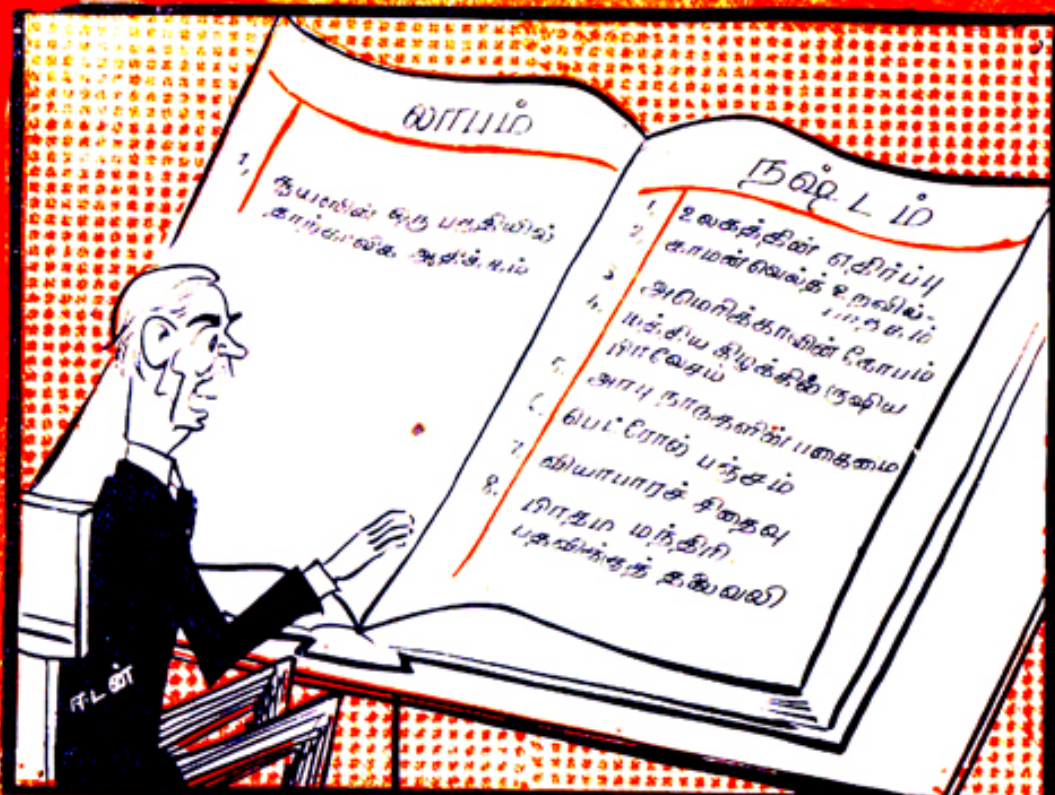 லாபம்
1, சூயஸின் ஒரு பகுதியில்
தாற்காலிக ஆதிக்கம்
நஷ்டம்
1, உலகத்தின் எதிர்ப்பு
2, காமன்வெல்த் உறவில்
பாதகம்
3 அமெரிக்காவின் கோபம்
4. மத்திய கிழக்கில் ருஷிய
பிரவேசம்
5. அரபு நாடுகளின் பகைமை
6. பெட்ரோல் பஞ்சம்
7. வியாபாரச் சிதைவு
8. பிரதம மந்திரி
பதவிக்குத் தலைவலி
ஈடன்